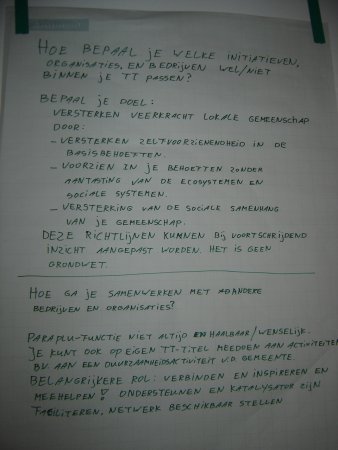 HOE BEPAAL JE WELKE INITIATIEVEN,
ORGANISATIES, EN BEDRIJVEN WEL/NIET
BINNEN JE TT PASSEN?
BEPAAL JE DOEL:
VERSTERKEN VEERKRACHT LOKALE GEMEENSCHAP
DOOR:
- VERSTERKEN ZELFVOORZIENENDHEID IN DE
BASISBEHOEFTEN.
- VOORZIEN IN JE BEHOEFTEN ZONDER
AANTASTING VAN DE ECOSYSTEMEN EN
SOCIALE SYSTEMEN.
- VERSTERKING VAN DE SOCIALE SAMENHANG
VAN JE GEMEENSCHAP.
DEZE RICHTLIJNEN KUNNEN BIJ VOORTSCHRIJDEND
INZICHT AANGEPAST WORDEN. HET IS GEEN
GRONDWET.
HOE GA JE SAMENWERKEN MET ANDERE
BEDRIJVEN EN ORGANISATIES?
PARAPLU-FUNCTIE NIET ALTIJD HAALBAAR/WENSELIJK.
JE KUNT OOK OP EIGEN TT-TITEL MEEDOEN AAN ACTIVITEITEN
BV. AAN EEN DUURZAAMHEIDSACTIVITEIT V.D. GEMEENTE.
BELANGRIJKERE ROL: VERBINDEN EN INSPIREREN EN
MEEHELPEN! ONDERSTEUNEN EN KATALYSATOR ZIJN
FACILITEREN, NETWERK BESCHIKBAAR STELLEN